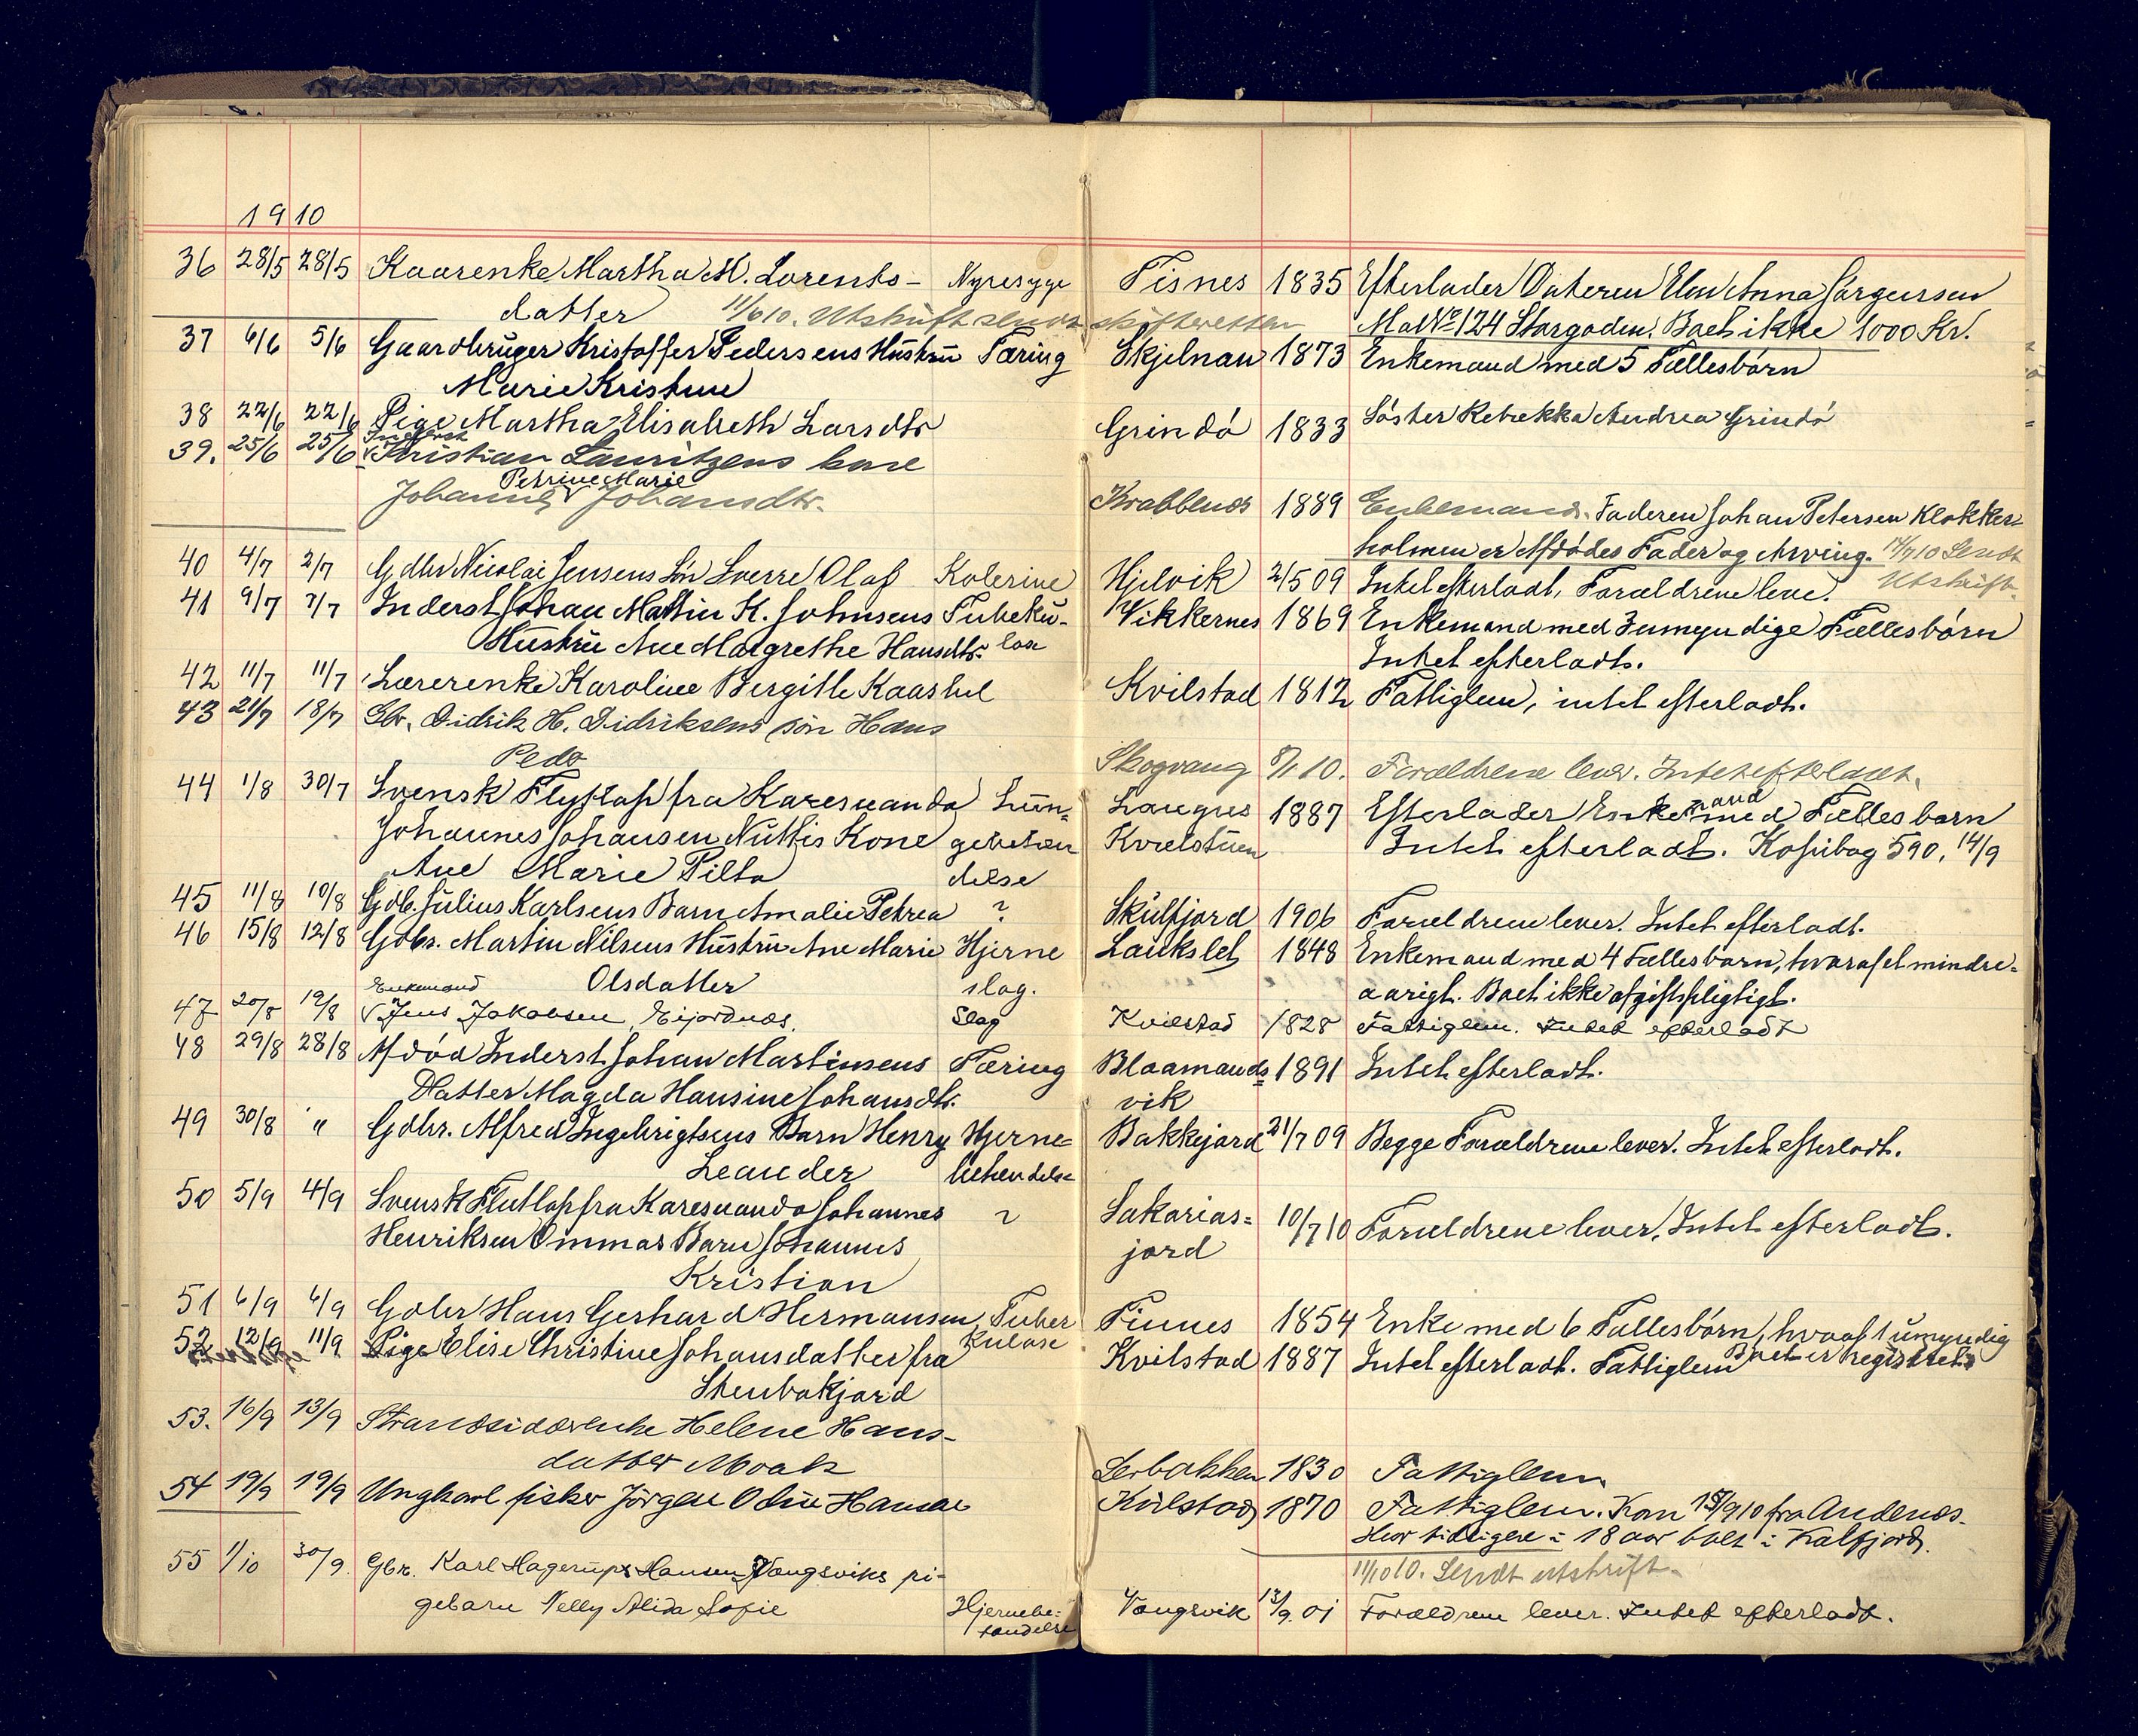 1910
36 28/5 28/5 Kaarenke Martha M. Lorents- Nyresyge Tisnes 1835 Efterlader Datteren Elen Anna Jørgensen
datter 11/6 10. Utskrift skifteretten Mat No 124 Storgaden. Boet ikke 1000 Kr.
37 6/6 5/6 Gaardbruger Kristoffer Pedersens Hustru Tæring Skjelnan 1873 Enkemand med 5 Fællesbørn
Marie Kristine
38 22/6 22/6 Pige Martha Elisabeth Larsdtr Grindø 1833 Søster Rebekka Andrea Grindø
39. 25/6 25/6 Inderst Kristian Lauritzens kone
Petrine Marie
Johanne Johansdtr. Krabbenes 1889 Enkemand. Faderen Johan Petersen Klokker-
holmen er Afdødes Fader og Arving. 14/7 10 Sendt
40 4/7 2/7 Gdbr Nicolai Jensens Søn Sverre Olaf Kolerine Hjelvik 2/5 09 Intet efterladt, Forældrene leve. Utskrift.
41 9/7 7/7 Inderst Johan Mathin K. Johnsens Tubeku- Vikkernes 1869 Enkemand med 3 umyndige Fællesbørn
Hustru Ane Margrethe Hansdtr. lose Intet efterladt.
42 11/7 11/7 Lærerenke Karoline Bergitte Kaasbøl Kvilstad 1812 Fattiglem, intet efterladt.
43 21/7 18/7 Gbr. Didrik H. Didriksens søn Hans
Peder Skogvang 8/1 10. Forældrene lever. Intet efterladt.
44 1/8 30/7 Svensk Flytlap fra Karesuando Lun- Langnes 1887 Efterlader Enkemand med Fællesbarn
Johannes Johansen Nuttis Kone gebetæn Kvælstuen Intet efterladt. Kopibog 590, 14/9
Ane Marie Pilto delse
45 11/8 10/8 Gdb. Julius Karlsens Barn Amalie Petrea ? Skulfjord 1906 Forældrene lever. Intet efterladt.
46 15/8 12/8 Gdbs. Martin Nilsens Hustru Ane Marie Hjerne Laukslet 1848 Enkemand med 4 Fællesbørn, hvoraf et mindre-
Olsdatter slag. aarigt. Boet ikke afgiftspligtigt.
Enkemand
47 20/8 19/8 Jens Jakobsen, Eijordnæs. Slag Kvilstad 1828 Fattiglem. Intet efterladt
48 29/8 28/8 Afdød Inderst Johan Martinsens Tæring Blaamands= 1891 Intet efterladt.
Datter Magda Hansine Johansdtr. vik
49 30/8 " Gdbr. Alfred Ingebrigtsens Barn Henry Hjerne- Bakkejord 21/7 09 Begge Forældrene lever. Intet efterladt.
Leander betændelse
50 5/9 4/9 Svensk Flutlap fra Karesuando Johannes ? Sakarias= 10/7 10 Forældrene lever, Intet efterladt.
Henriksen Ommas Barn Johannes jord
Kristian
51 6/9 6/9 Gdbr Hans Gerhard Hermansen, Tuber Finnes 1854 Enke med 6 Fællesbørn, hvoraf 1 umyndig
kulose Boet er registreret
52 12/9 11/9 Pige Elise Christine Johansdatter fra Kvilstad 1887 Intet efterladt. Fattiglem
Stenbakjord
53. 16/9 13/9 Strandsidderenke Helene Hans-
datter Moak Lerbakken 1830 Fattiglem
54 19/9 19/9 Ungkarl fisker Jörgen Odin Hansen Kvilstad 1870 Fattiglem. Kom 15/9 10 fra Andenæs.
Hvor tidligere i 18 aar boet i Kalfjord.
11/10 10. Sendt utskrift.
55 1/10 30/9. Gbr. Karl Hagerups Hansen Vangsviks pi-
gebarn Nelly Alida Sofie Hjernebe= Vangsvik 13/9. 01 Forældrene lever. Intet efterladt.
tændelse